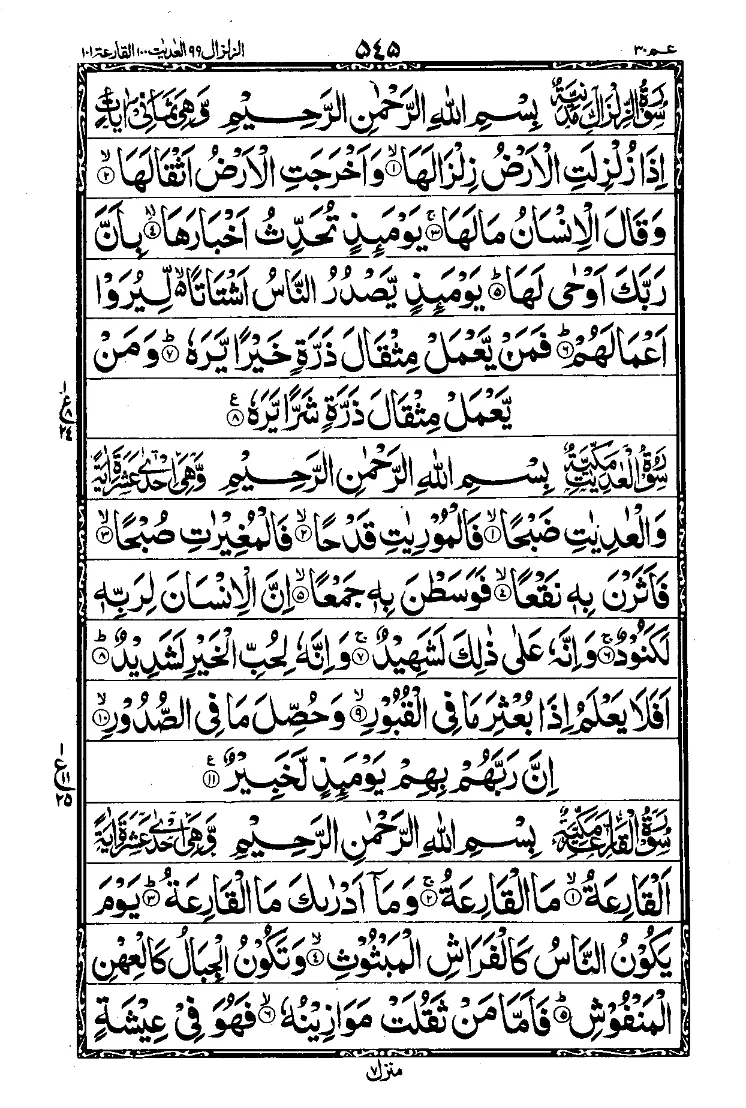 عم ٣٠ ٥٤٥ الزلزال ٩٩ العديت ١٠٠ القارعة ١٠١
سُوْرَةُ الزِّلْزَالِ مَدَنِيَّةٌ بِسْمِ اللّٰهِ الرَّحْمٰنِ الرَّحِيْمِ وَّهِيَ ثَمَانِيْ اٰيَاتٍ
اِذَا زُلْزِلَتِ الْاَرْضُ زِلْزَالَهَا ۙ‏﴿١﴾ وَاَخْرَجَتِ الْاَرْضُ اَثْقَالَهَا ۙ‏﴿٢﴾
وَقَالَ الْاِنْسَانُ مَا لَهَا ۚ‏﴿٣﴾ يَوْمَئِذٍ تُحَدِّثُ اَخْبَارَهَا ۙ‏﴿٤﴾ بِاَنَّ
رَبَّكَ اَوْحٰى لَهَا ؕ‏﴿٥﴾ يَوْمَئِذٍ يَّصْدُرُ النَّاسُ اَشْتَاتًا ۙ۬ لِّيُرَوْا
اَعْمَالَهُمْ ؕ‏﴿٦﴾ فَمَنْ يَّعْمَلْ مِثْقَالَ ذَرَّةٍ خَيْرًا يَّرَهٗ ؕ‏﴿٧﴾ وَمَنْ
يَّعْمَلْ مِثْقَالَ ذَرَّةٍ شَرًّا يَّرَهٗ ‏﴿٨﴾
ع ٨ ٢٤
سُوْرَةُ الْعٰدِيٰتِ مَكِّيَّةٌ بِسْمِ اللّٰهِ الرَّحْمٰنِ الرَّحِيْمِ وَّهِيَ اِحْدٰى عَشْرَةَ اٰيَةً
وَالْعٰدِيٰتِ ضَبْحًا ۙ‏﴿١﴾ فَالْمُوْرِيٰتِ قَدْحًا ۙ‏﴿٢﴾ فَالْمُغِيْرٰتِ صُبْحًا ۙ‏﴿٣﴾
فَاَثَرْنَ بِهٖ نَقْعًا ۙ‏﴿٤﴾ فَوَسَطْنَ بِهٖ جَمْعًا ۙ‏﴿٥﴾ اِنَّ الْاِنْسَانَ لِرَبِّهٖ
لَكَنُوْدٌ ۚ‏﴿٦﴾ وَاِنَّهٗ عَلٰى ذٰلِكَ لَشَهِيْدٌ ۚ‏﴿٧﴾ وَاِنَّهٗ لِحُبِّ الْخَيْرِ لَشَدِيْدٌ ؕ‏﴿٨﴾
اَفَلَا يَعْلَمُ اِذَا بُعْثِرَ مَا فِى الْقُبُوْرِ ۙ‏﴿٩﴾ وَحُصِّلَ مَا فِى الصُّدُوْرِ ۙ‏﴿١٠﴾
اِنَّ رَبَّهُمْ بِهِمْ يَوْمَئِذٍ لَّخَبِيْرٌ ‏﴿١١﴾
ع ١١ ٢٥
سُوْرَةُ الْقَارِعَةِ مَكِّيَّةٌ بِسْمِ اللّٰهِ الرَّحْمٰنِ الرَّحِيْمِ وَّهِيَ اِحْدٰى عَشْرَةَ اٰيَةً
اَلْقَارِعَةُ ۙ‏﴿١﴾ مَا الْقَارِعَةُ ۚ‏﴿٢﴾ وَمَاۤ اَدْرٰىكَ مَا الْقَارِعَةُ ؕ‏﴿٣﴾ يَوْمَ
يَكُوْنُ النَّاسُ كَالْفَرَاشِ الْمَبْثُوْثِ ۙ‏﴿٤﴾ وَتَكُوْنُ الْجِبَالُ كَالْعِهْنِ
الْمَنْفُوْشِ ؕ‏﴿٥﴾ فَاَمَّا مَنْ ثَقُلَتْ مَوَازِيْنُهٗ ۙ‏﴿٦﴾ فَهُوَ فِيْ عِيْشَةٍ
منزل ٧